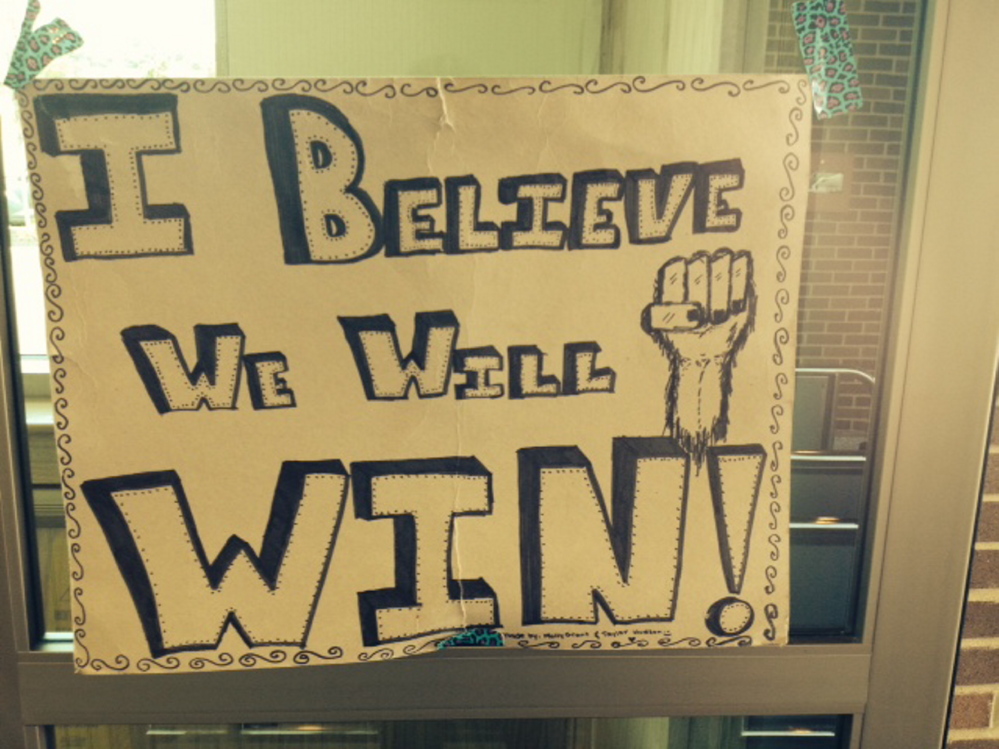 I BELIEVE
WE WILL
WIN!
Made by: Molly Grant & Skylar Hudson